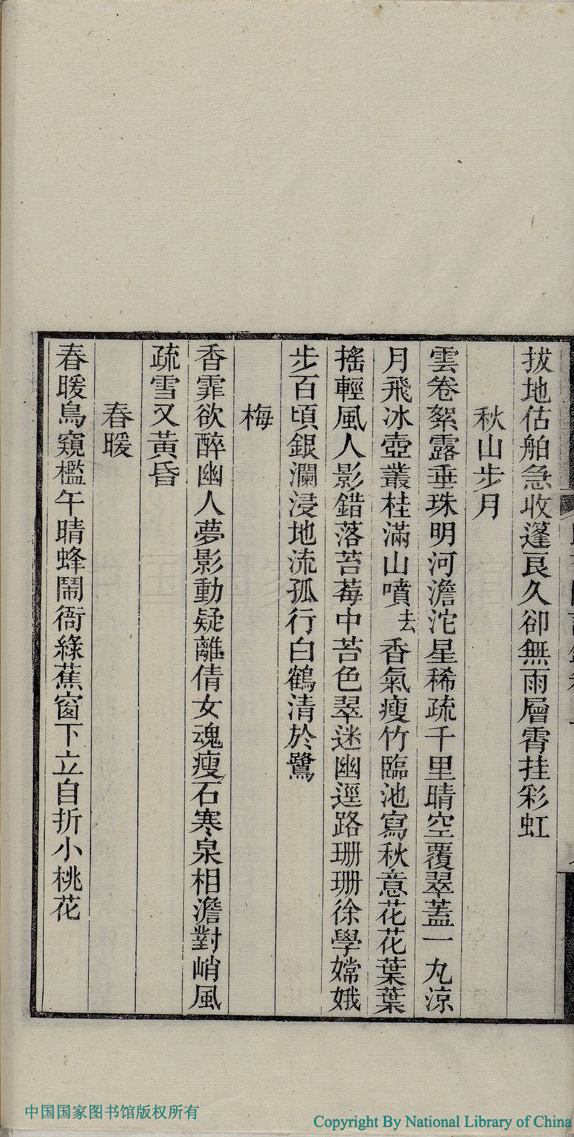 拔地估舶急收篷良久卻無雨層霄挂彩虹
秋山步月
雲卷絮露垂珠明河澹沱星稀疏千里晴空覆翠蓋一丸涼
月飛冰壺叢桂滿山噴去香氣瘦竹臨池寫秋意花花葉葉
搖輕風人影錯落苔莓中苔色翠迷幽逕路珊珊徐學嫦娥
步百頃銀瀾浸地流孤行白鶴清於鷺
梅
香霏欲醉幽人夢影動疑離倩女魂瘦石寒泉相澹對峭風
疏雪又黃昏
春暖
春暖鳥窺檻午晴蜂鬧衙綠蕉窗下立自折小桃花
中国国家图书馆版权所有
Copyright By National Library of China